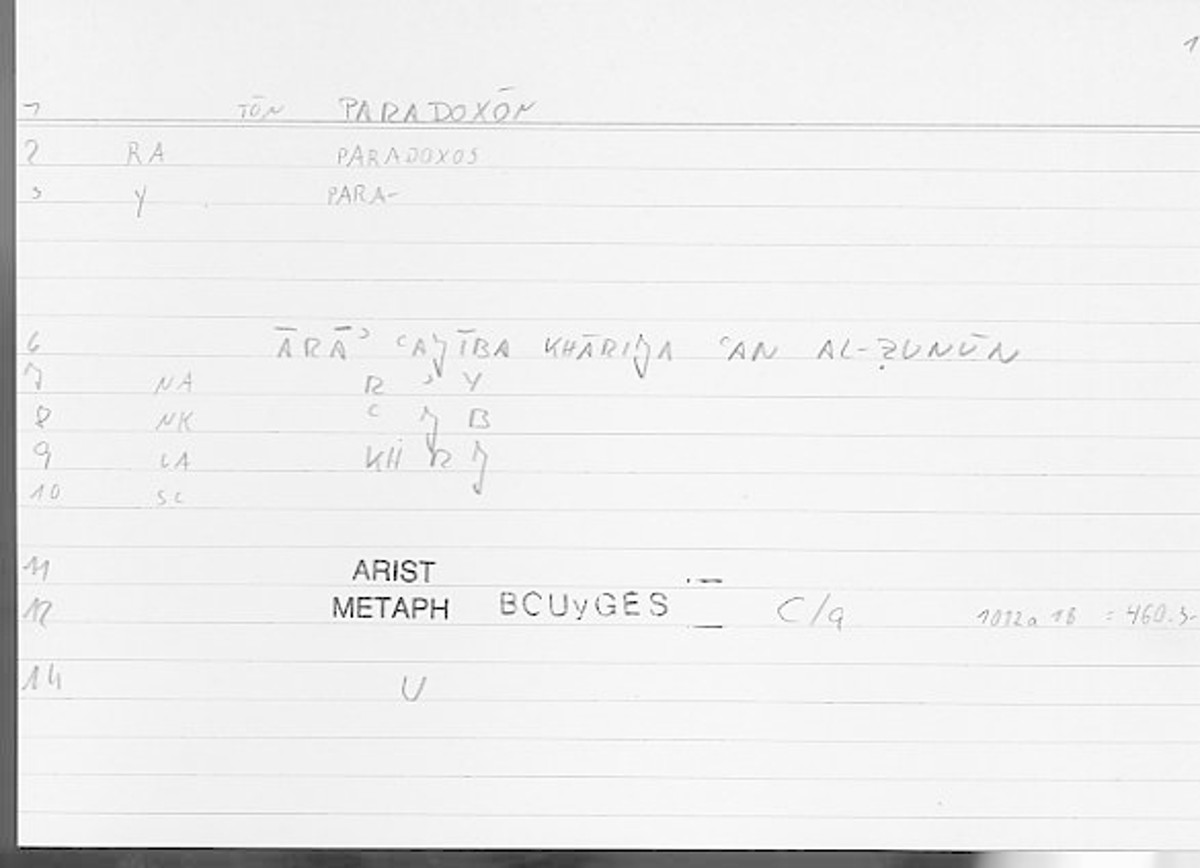 1
1 TŌN PARADOXŌN
2 RA PARADOXOS
3 Y PARA-
6 ĀRĀʾ ʿAJĪBA KHĀRIJA ʿAN AL-ẒUNŪN
7 NA R ʾ Y
8 NK ʿ J B
9 LA KH R J
10 SC
11 ARIST
12 METAPH BCUyGES C/a 1012a 18 = 460.3-
14 U